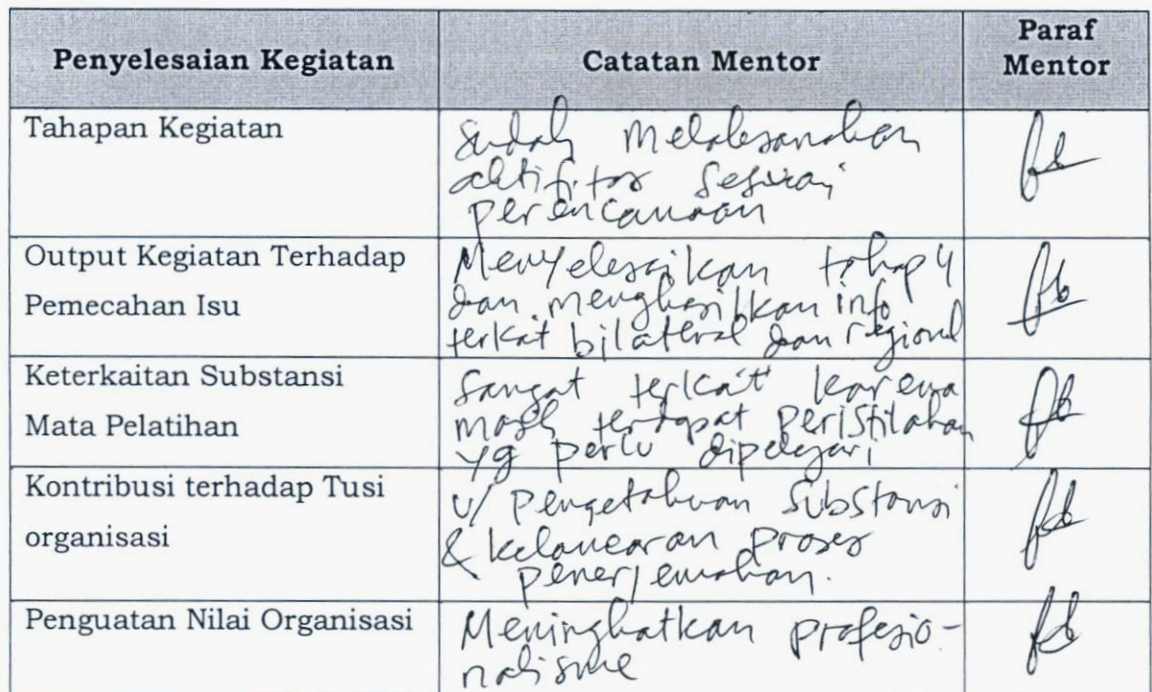 Penyelesaian Kegiatan
Catatan Mentor
Paraf
Mentor
Tahapan Kegiatan
Sudah melaksanakan
aktifitas sesuai
perencanaan
Output Kegiatan Terhadap
Pemecahan Isu
Menyelesaikan tahap 4
dan menghasilkan info
terkait bilateral dan regional
Keterkaitan Substansi
Mata Pelatihan
Sangat terkait karena
masih terdapat peristilahan
yg perlu dipelajari
Kontribusi terhadap Tusi
organisasi
u/ pengetahuan substansi
& kelancaran proses
penerjemahan.
Penguatan Nilai Organisasi
Meningkatkan profesio-
nalisme